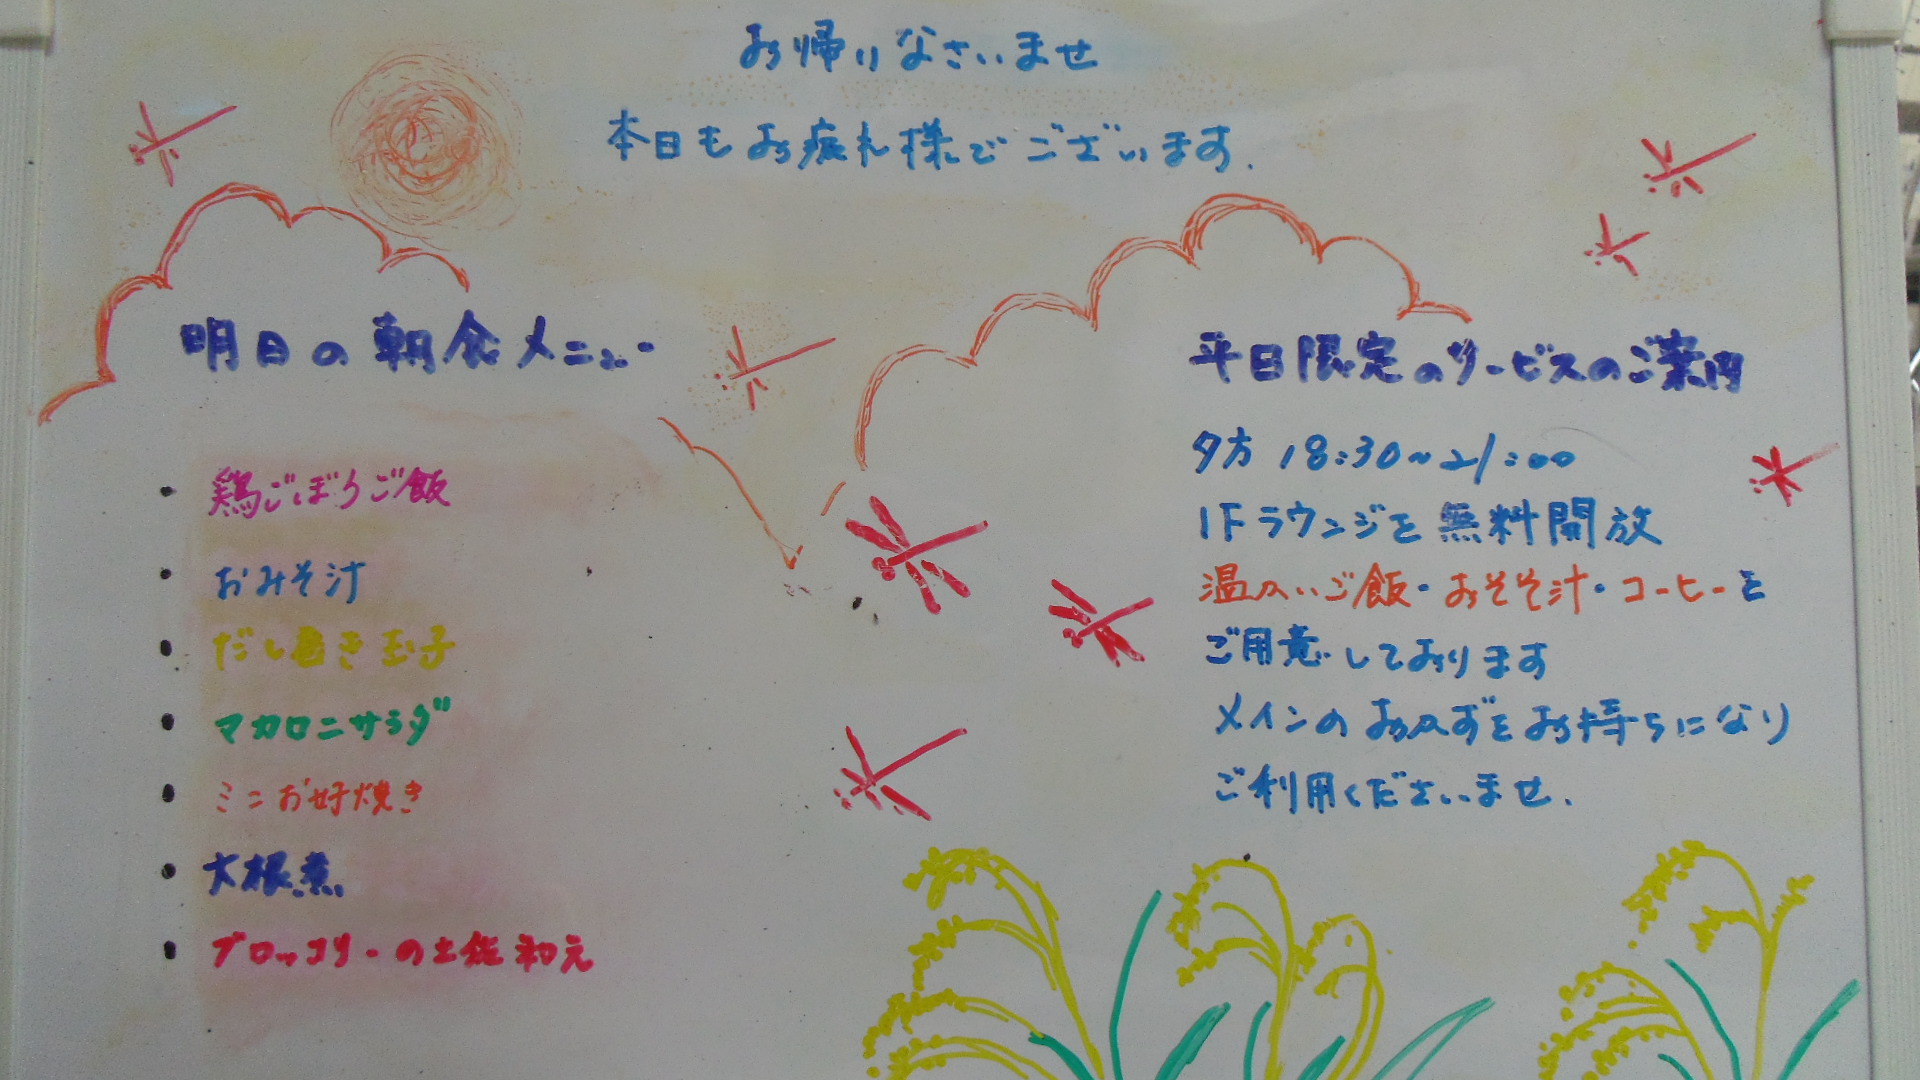 お帰りなさいませ
本日もお疲れ様でございます.
明日の朝食メニュー
・鶏ごぼうご飯
・おみそ汁
・だし巻き玉子
・マカロニサラダ
・ミニお好焼き
・大根煮
・ブロッコリーの土佐和え
平日限定のサービスのご案内
夕方 18:30~21:00
1Fラウンジを無料開放
温かいご飯・おみそ汁・コーヒーを
ご用意しております
メインのおかずをお持ちになり
ご利用くださいませ.